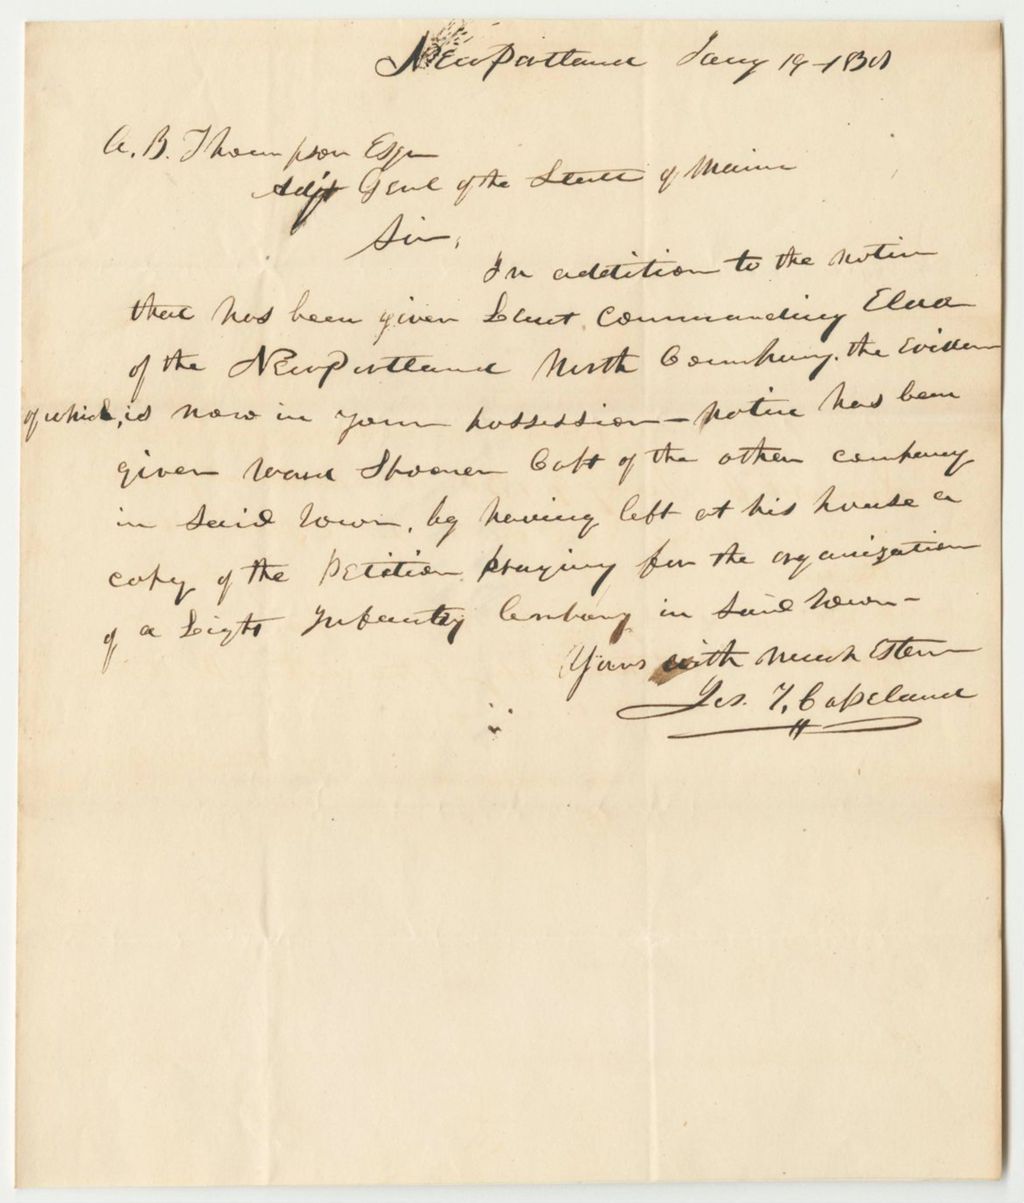 New Portland Jany 19 - 1838
A. B. Thompson Esqr
Adjt Genl of the State of Maine
Sir,
In addition to the notice
that has been given Leiut Commanding
of the New Portland North Company, the Evidence
of which, is now in your possession - notice has been
given Ward Spooner Capt of the other company
in said Town, by having left at his house a
copy of the Petition praying for the organization
of a Light Infantry Company in said Town -
Yours with much Esteem
Jas. T. Copeland